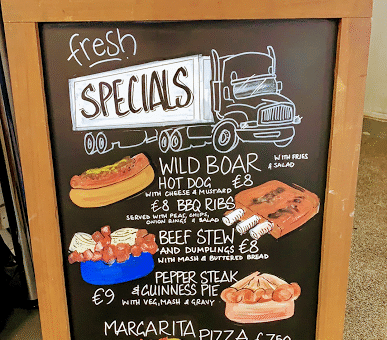 fresh
SPECIALS
WILD BOAR WITH FRIES
HOT DOG €8 & SALAD
WITH CHEESE & MUSTARD
€8 BBQ RIBS
SERVED WITH PEAS, CHIPS,
ONION RINGS & SALAD
BEEF STEW
AND DUMPLINGS €8
WITH MASH & BUTTERED BREAD
PEPPER STEAK
€9 & GUINNESS PIE
WITH VEG, MASH & GRAVY
MARGARITA PIZZA £7.50